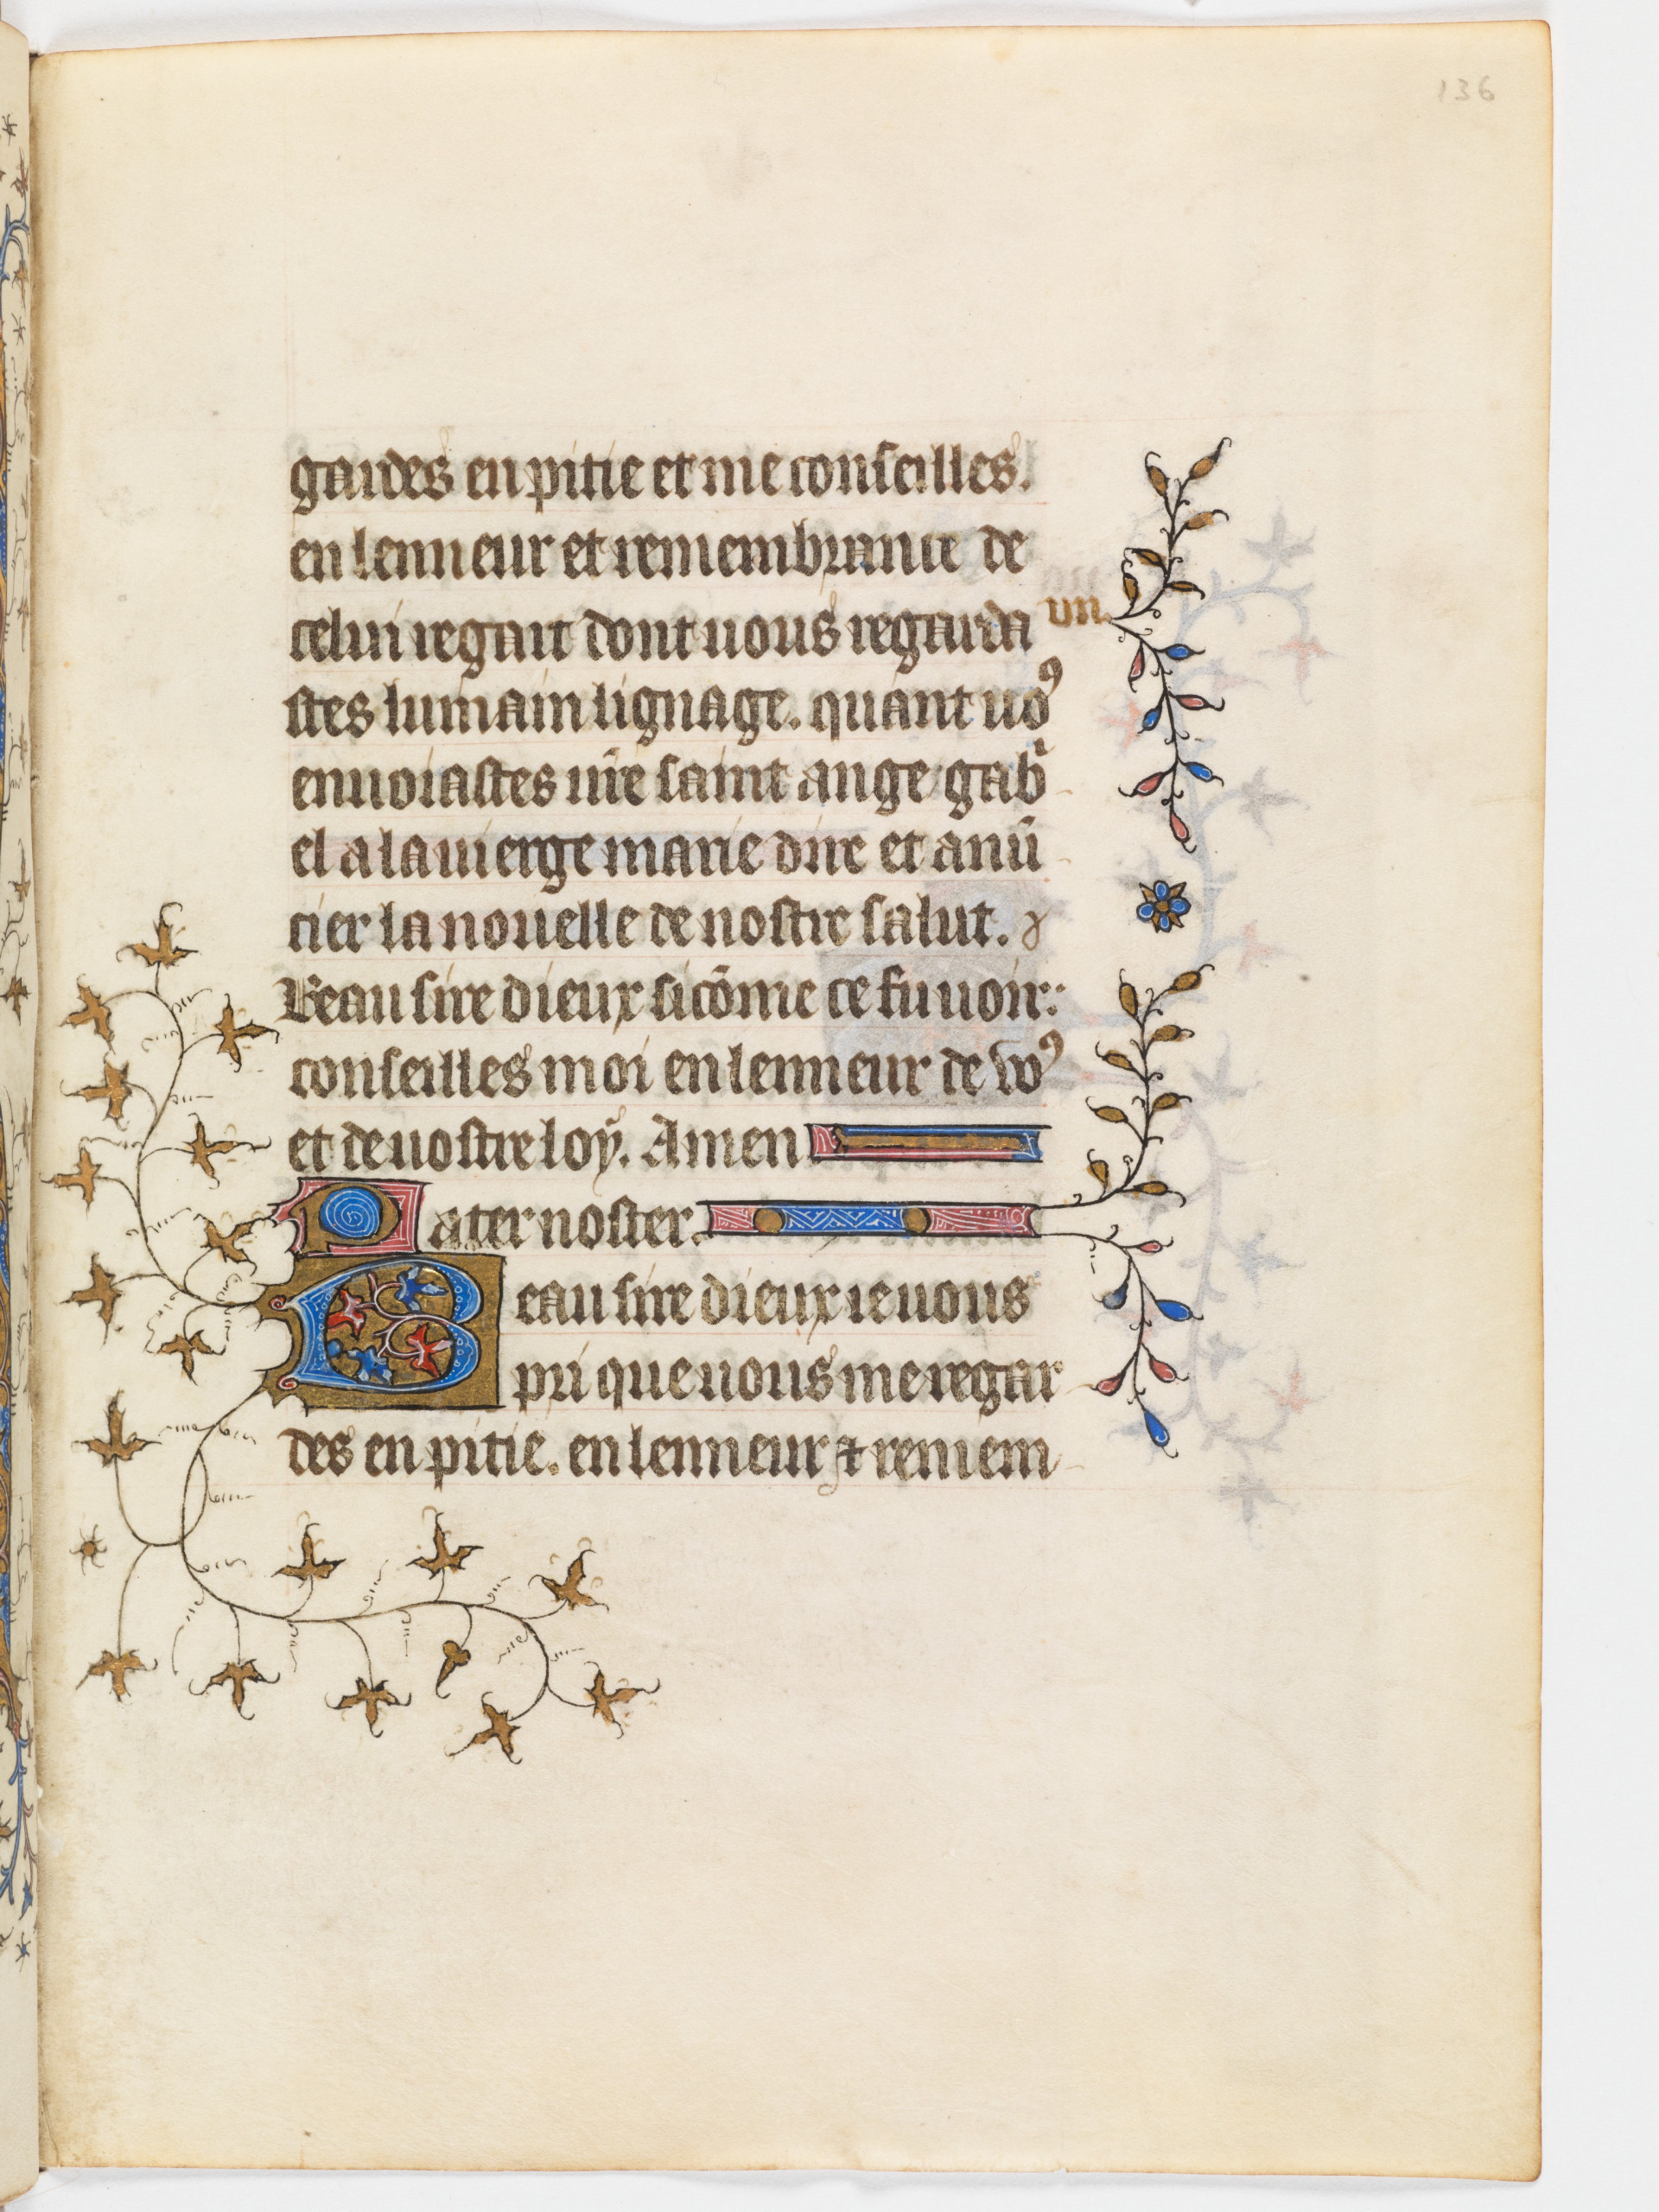 136
gardes en pitie et me conseilles.
en lenneur et remembrance de
celui regart dont uous regarda
stes lumain lignage. quant uoꝰ
enuoiastes nr̃e saint ange gabͥ
el a la uierge marie dire et anũ
cier la nouelle de nostre salut.
Beau sire dieux si cõme ce fu uoir:
conseilles moi en lenneur de voꝰ
et de uostre loy. Amen
Pater noster.
Beau sire dieux ie uous
pri que uous me regar
des en pitie. en lenneur ⁊ remem